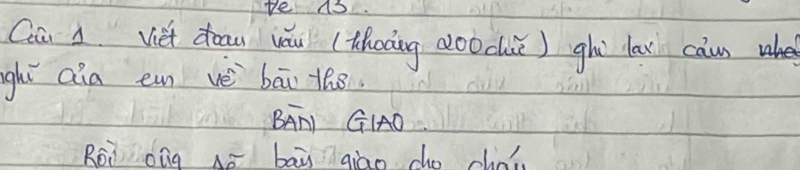 Đề 13.
Câu 1. Viết đoạn văn (khoảng 200 chữ) ghi lại cảm
nghĩ của em về bài thơ.
BÀN GIAO.
Rồi ông sẽ bàn giao cho cháu